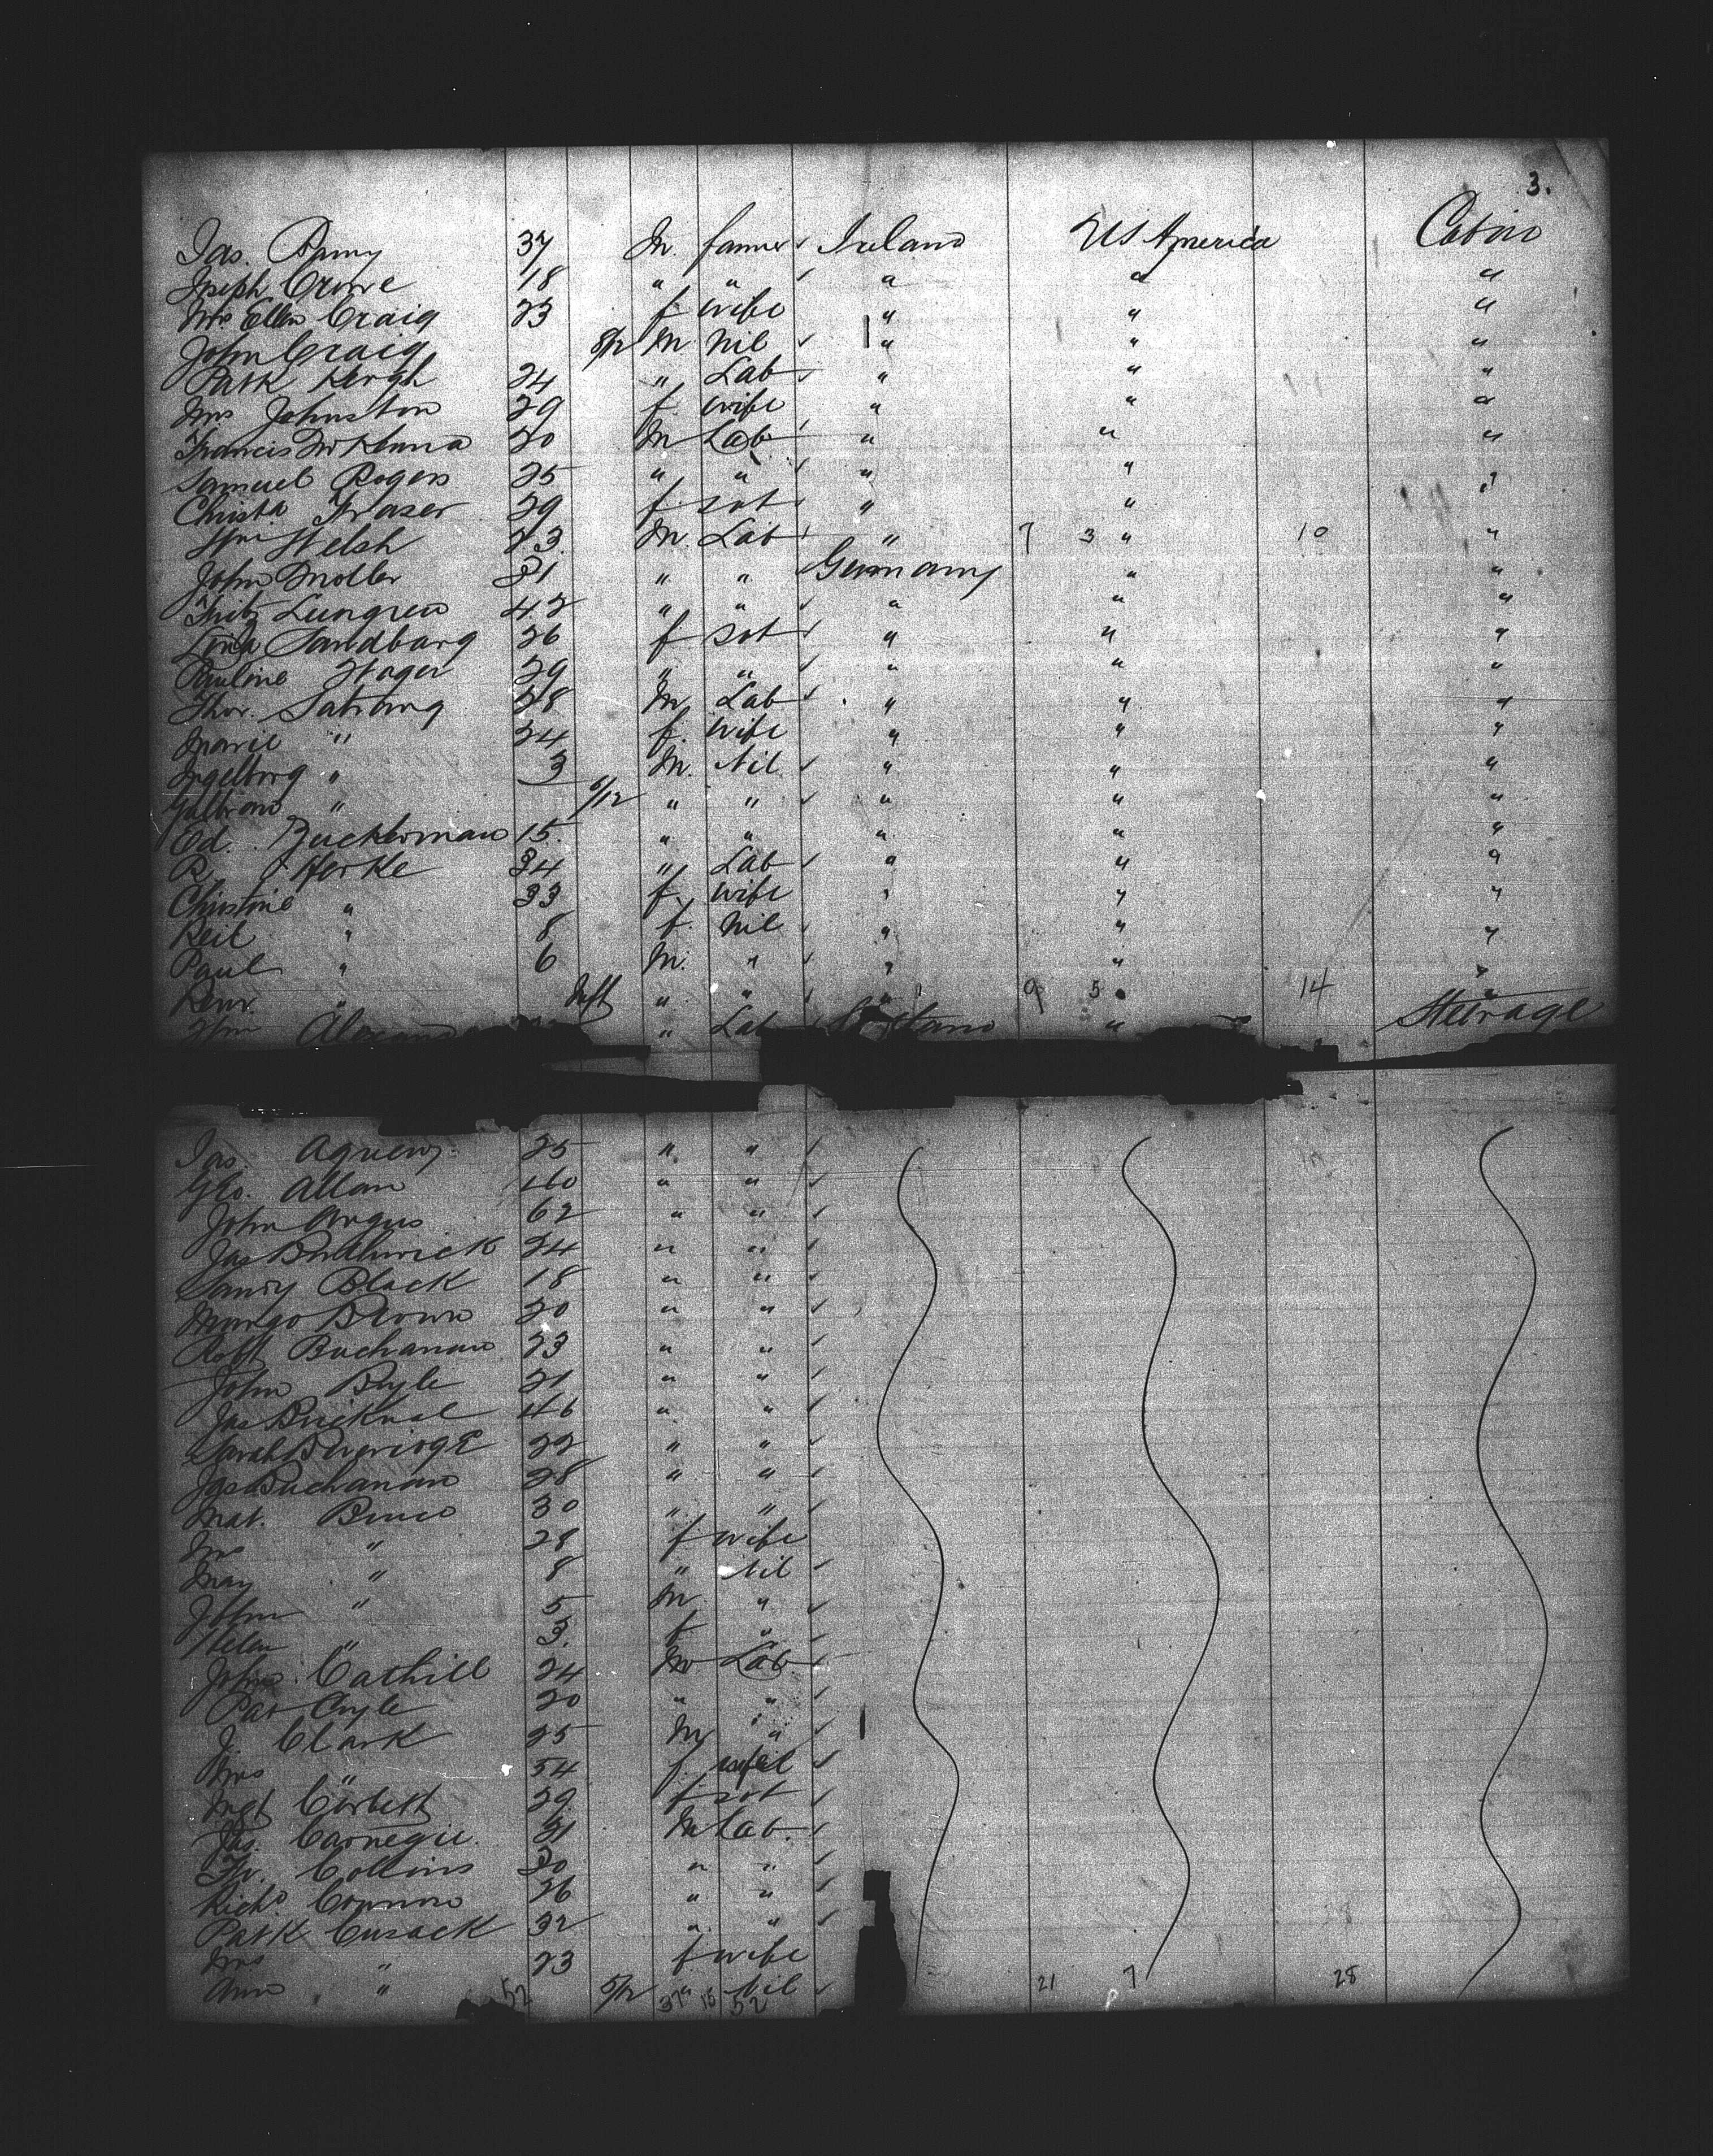 3.
Jas. 37 M. farmer Ireland US America Cabin
Joseph Crowe 18 " " " " "
Mrs Ellen Craig 23 f wife " " "
John Craig 8/12 M Nil " " "
Patk 24 " Lab " " "
Mrs Johnston 29 f. wife " " "
Francis McKenna 20 M Lab " " "
Samuel Rogers 25 " " " " "
Christa Fraser 29 f spt " " "
Wm Welsh 23 M. Lab " 7 3 " 10 "
John Moller 21 " " Germany " "
Fritz Lungren 42 " " " " "
Sandbarg 26 f spt " " "
Pauline Hager 29 " " " " "
Thor. 28 M. Lab " " "
Marie " 24 f. wife " " "
Ingelborg " 3 M. Nil " " "
" 6/12 " " " " "
Ed. Buckerman 15 " " " " "
R. Herke 34 " Lab " " "
Christine " 33 f. wife " " "
" 8 f. Nil " " "
Paul " 6 M. " " " "
" Inft " " " 9 5 " 14 "
Wm " Lab " Steerage
Jas. Agnew 25 " "
Geo. Allan 40 " "
John Angus 62 " "
Jas Borthwick 24 " "
Sandy Black 18 " "
Mungo Brown 20 " "
Robt Buchanan 23 " "
John Byle 21 " "
Jas 46 " "
Sarah 22 " "
Jas Buchanan 28 " "
Mat. Bruce 30 " "
Mrs " 28 f wife
May " 8 " Nil
John " 5 M "
Helen " 3 f "
John Cathill 24 M Lab
Pat 20 " "
J. Clark 25 M "
Mrs " 54 f. wife
Mgt Corbett 29 f spt
Jas. Carnegie 21 M Lab.
Collins 20 " "
Richd. Connor 26 " "
Patk Cusack 32 " "
Mrs " 23 f wife
Ann " 5/12 " Nil 21 7 28
52 37 15 52